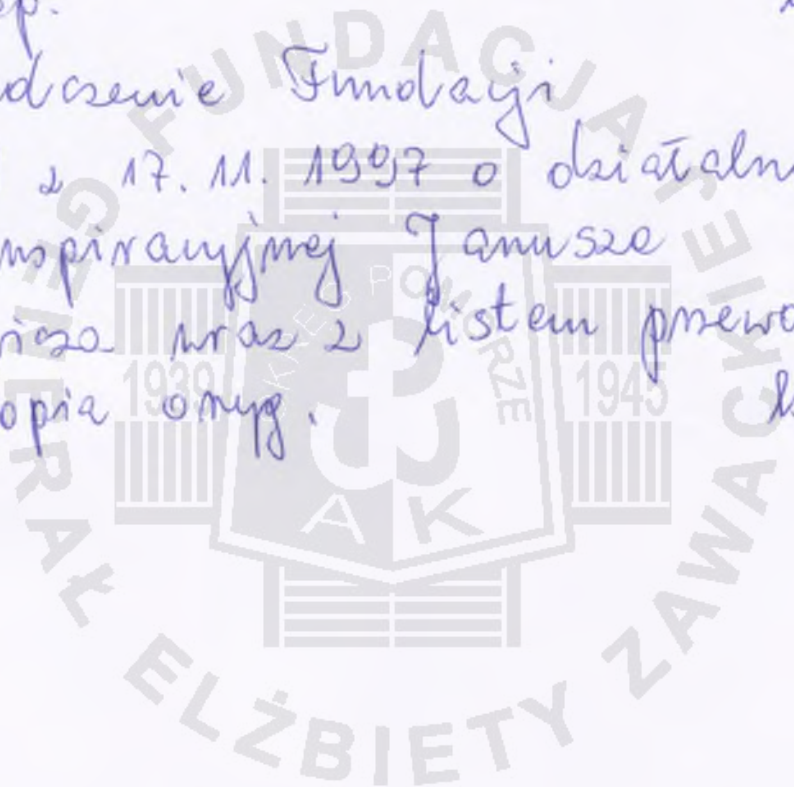 ep.
dczenie Fundacji
z 17. 11. 1997 o działaln
nspiracyjnej Janusza
icza wraz z listem przewo
opia oryg.
FUNDACJA
GENERAŁ ELŻBIETY ZAWACKIEJ
OKRĘG POMORZE
1939 1945
A K